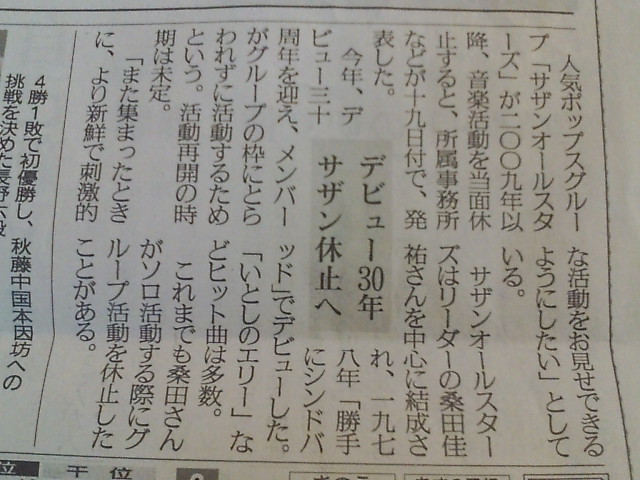 デビュー30年
サザン休止へ
人気ポップスグルー
プ「サザンオールスタ
ーズ」が二〇〇九年以
降、音楽活動を当面休
止すると、所属事務所
などが十九日付で、発
表した。
今年、デ
ビュー三十
周年を迎え、メンバー
がグループの枠にとら
われずに活動するため
という。活動再開の時
期は未定。
「また集まったとき
に、より新鮮で刺激的
な活動をお見せできる
ようにしたい」として
いる。
サザンオールスター
ズはリーダーの桑田佳
祐さんを中心に結成さ
れ、一九七
八年「勝手
にシンドバ
ッド」でデビューした。
「いとしのエリー」な
どヒット曲は多数。
これまでも桑田さん
がソロ活動する際にグ
ループ活動を休止した
ことがある。
4勝1敗で初優勝し、秋藤中国本因坊への
挑戦を決めた長野六段